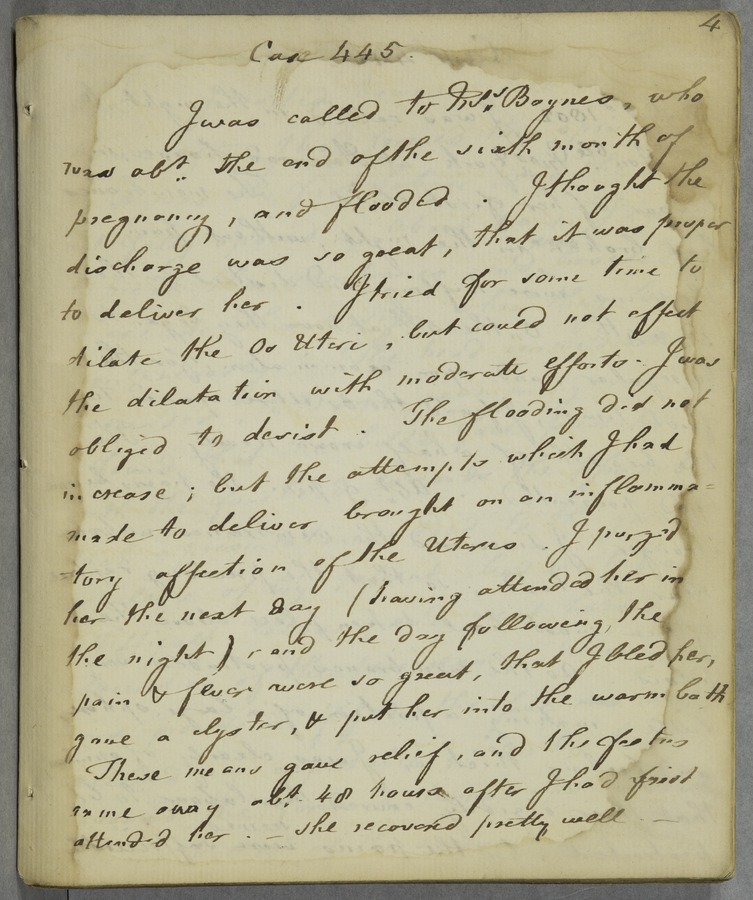 4
Case 445.
I was called to Mrs. Boynes, who
was abt. the end of the sixth month of
pregnancy, and flooded. I thought the
discharge was so great, that it was proper
to deliver her. I tried for some time to
dilate the Os Uteri, but could not effect
the dilatation with moderate efforts. I was
obliged to desist. The flooding did not
increase; but the attempts which I had
made to deliver brought on an inflamma=
=tory affection of the Uterus. I purged
her the next day (having attended her in
the night), and the day following, the
pain & fever were so great, that I bled her,
gave a clyster, & put her into the warm bath
These means gave relief, and the foetus
came away abt. 48 hours after I had first
attended her. — She recovered pretty well —